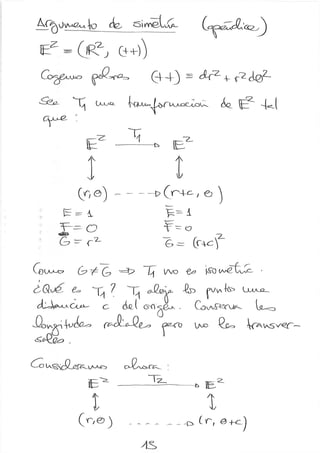 Argumento de simetría (apéndice)
E² = (ℝ², (++))
Cogemos polares (++) = dr² + r²dθ²
Sea T₁ una transformación de E² tal
que :
E² T₁→ E²
↕ ↕
(r,θ) - - - - → (r+c, θ)
E = 1 Ē = 1
F = 0 F̄ = 0
G = r² Ḡ = (r+c)²
Como G ≠ Ḡ ⇒ T₁ no es isometría.
¿Qué es T₁? T₁ aleja los puntos una
distancia c del origen. Conserva las
longitudes radiales pero no las transver-
sales.
Consideramos ahora :
E² T₂→ E²
↕ ↕
(r,θ) - - - - → (r, θ+c)
15